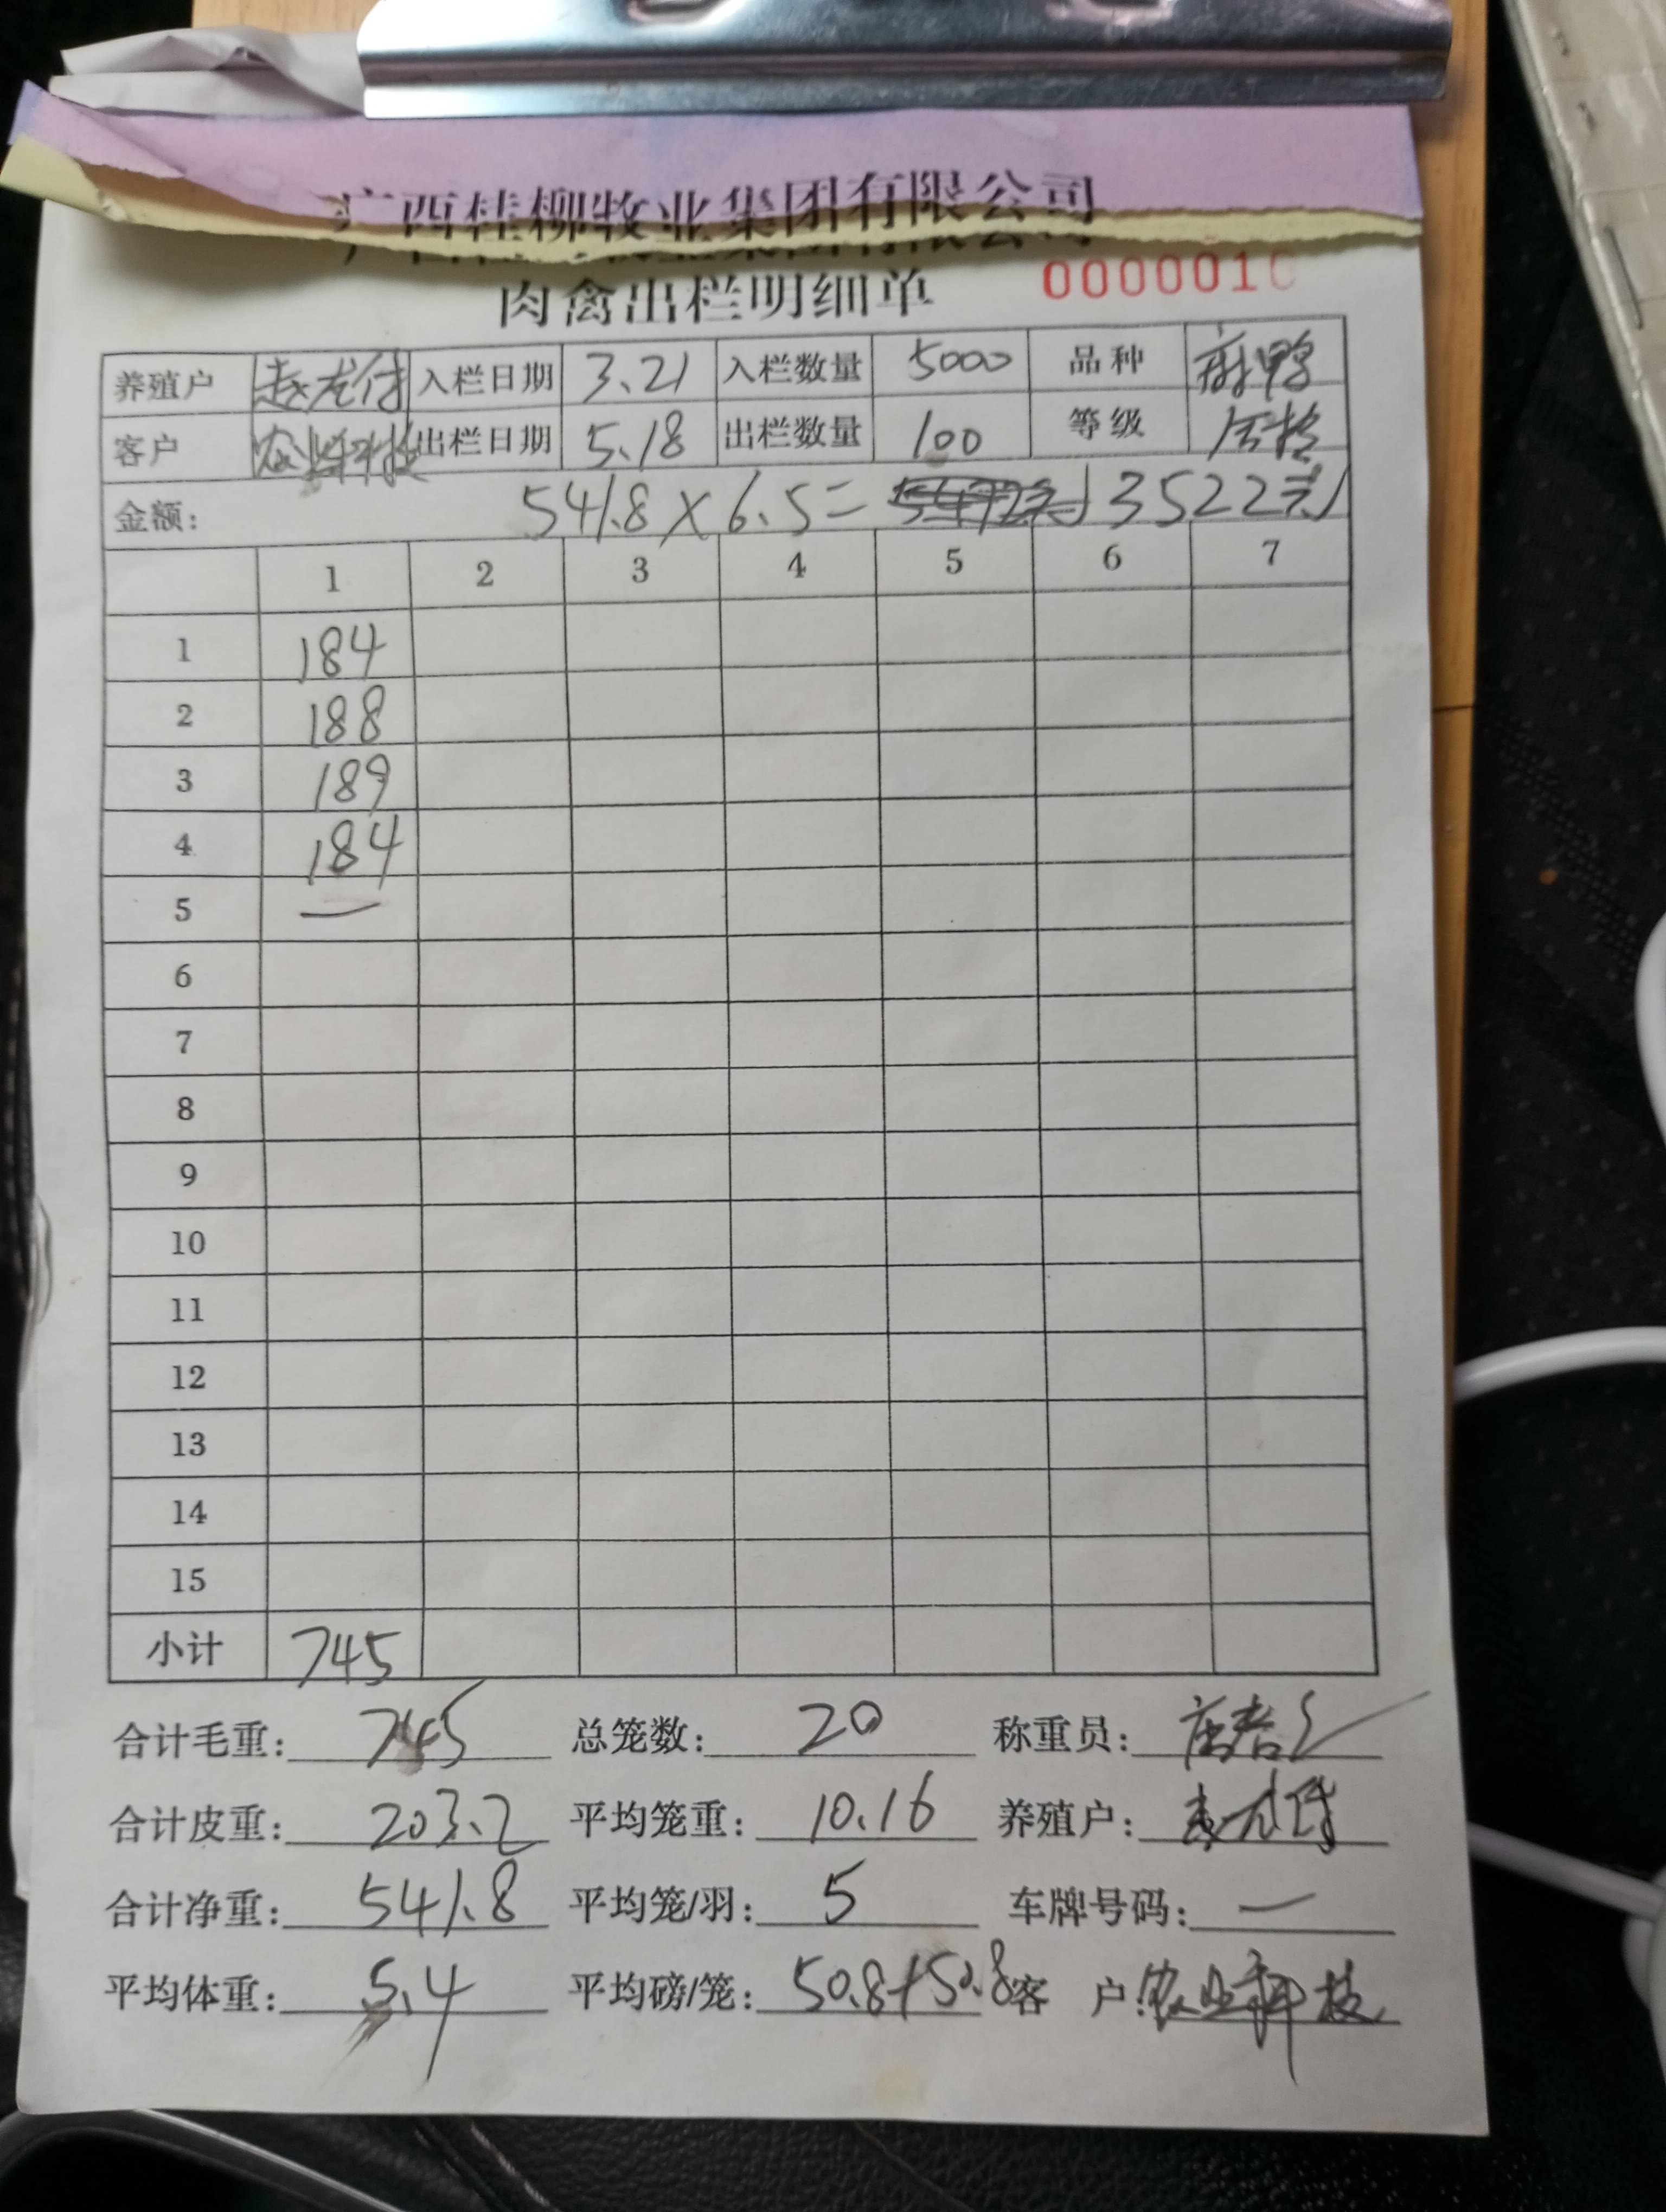 广西桂柳牧业集团有限公司
肉禽出栏明细单 000001
养殖户 赵龙付 入栏日期 3.21 入栏数量 5000 品种 麻鸭
客户 农业科技 出栏日期 5.18 出栏数量 100 等级 合格
金额: 541.8×6.5= 3522元
1 2 3 4 5 6 7
1 184
2 188
3 189
4 184
5 —
6
7
8
9
10
11
12
13
14
15
小计 745
合计毛重: 745 总笼数: 20 称重员:
合计皮重: 203.2 平均笼重: 10.16 养殖户: 赵龙付
合计净重: 541.8 平均笼/羽: 5 车牌号码: —
平均体重: 5.4 平均磅/笼: 50.8+50.8 客 户: 农业科技